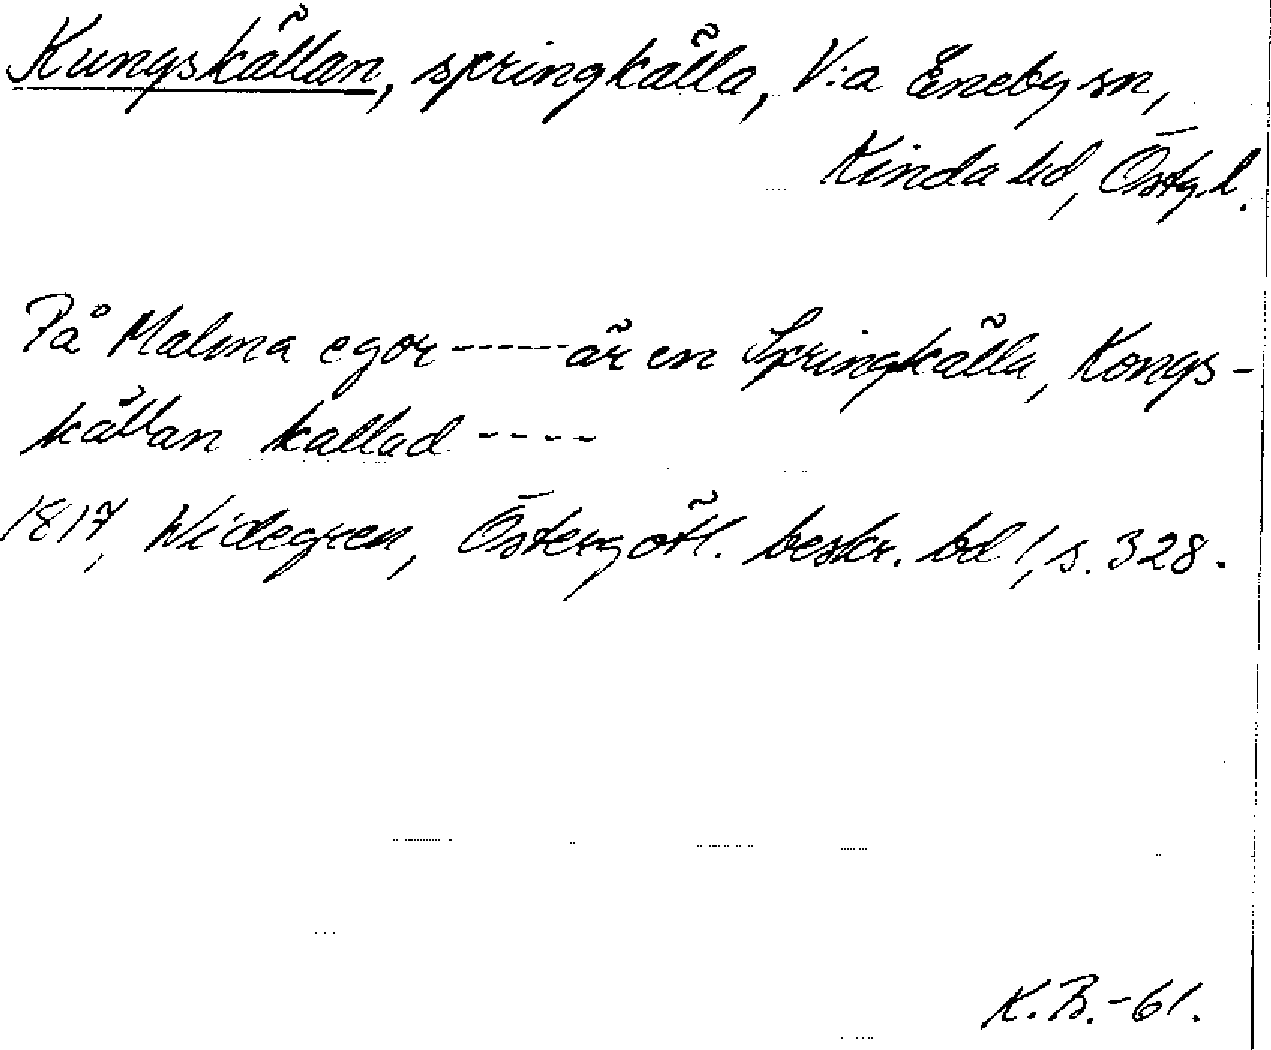 Kungskällan, springkälla, V:a Eneby sn,
Kinda hd, Östg.l.
På Malma egor ----- är en Springkälla, Kongs-
källan kallad ----
1817, Widegren, Östergötl. beskr. bd 1, s. 328.
K.B.-61.